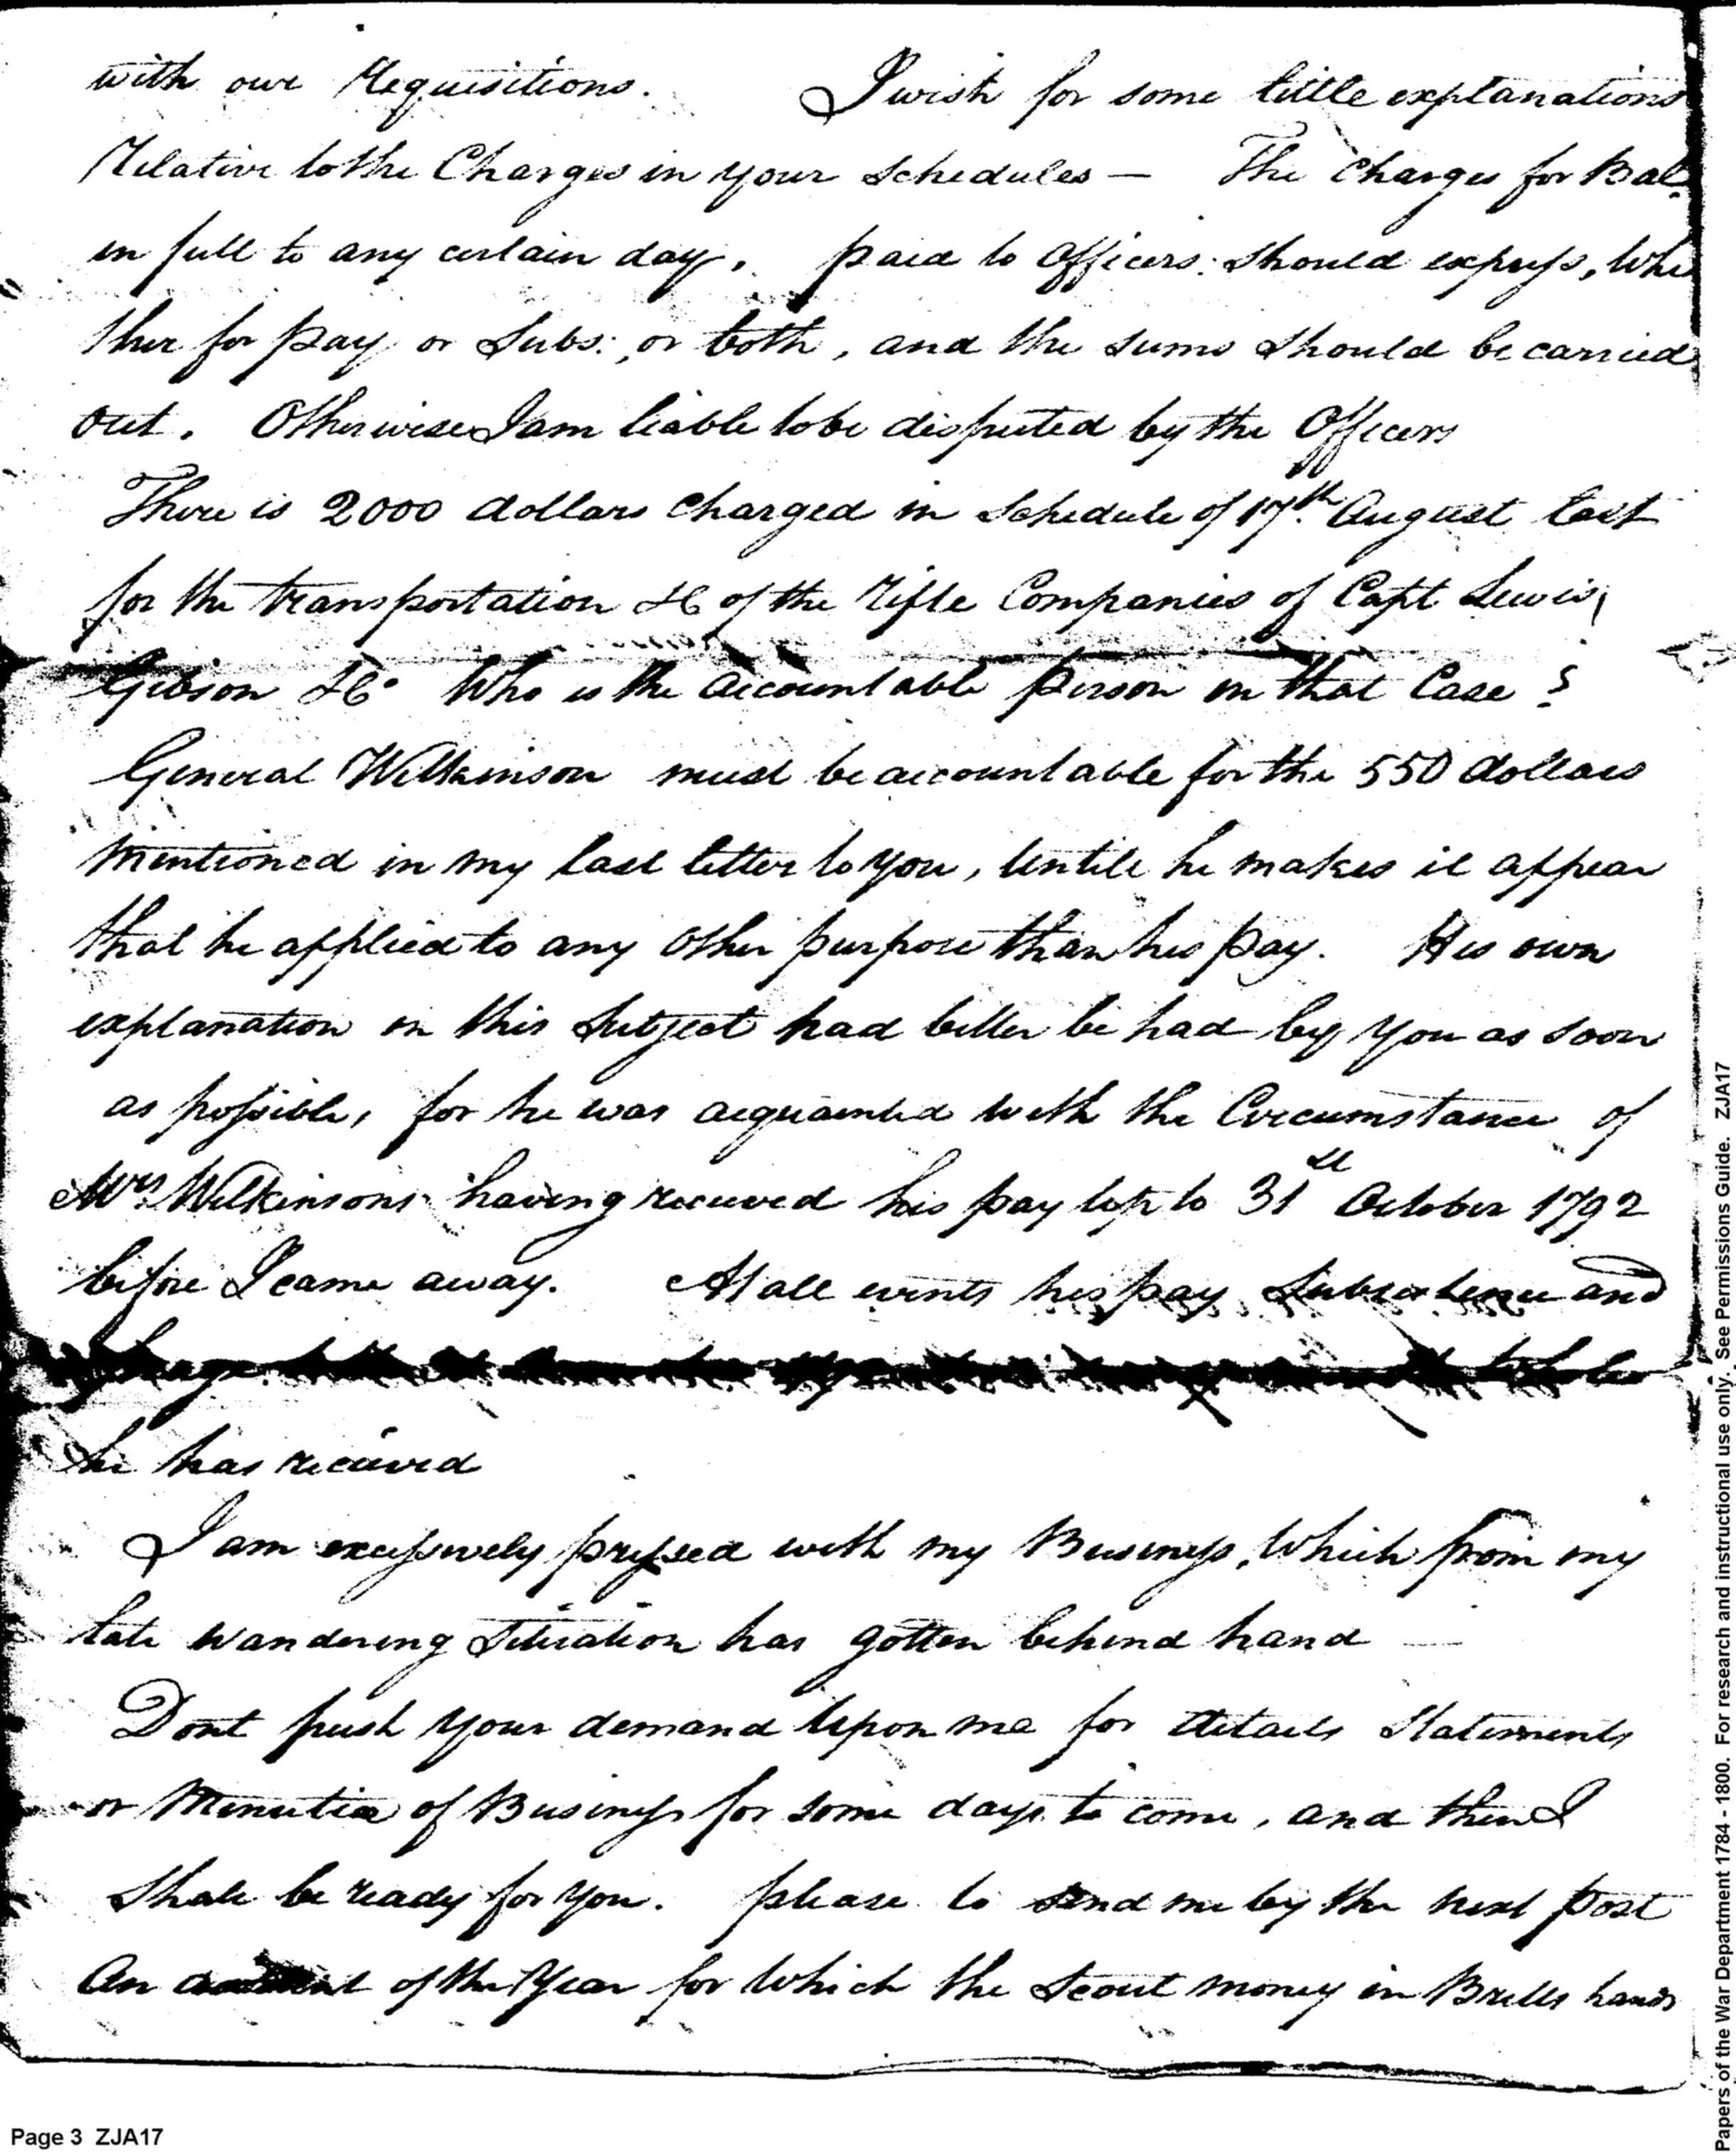 with our Requisitions. I wish for some little explanations
Relative to the Charges in your Schedules — The Charges for Bal.
in full to any certain day. paid to Officers: Should express, Whe
ther for pay or Subs:, or both, and the sums should be carried
out. Otherwise I am liable to be disputed by the Officers
There is 2000 dollars charged in Schedule of 17th August last
for the transportation &c of the Rifle Companies of Capt Lewis,
Gibson &c. Who is the accountable person in that Case?
General Wilkinson must be accountable for the 550 dollars
mentioned in my last letter to you, Untill he makes it appear
that he applied to any other purpose than his pay. His own
explanation on this Subject had better be had by you as soon
as possible, for he was acquainted with the Circumstance of
Mrs. Wilkinsons having received his pay up to 31st October 1792
before I came away. At all events his pay, Subsistence and
he has received
I am excessively pressed with my Business, Which from my
late wandering Situation has gotten behind hand —
Dont push your demand Upon me for details Statements
or Minutia of Business for some days to come, and then I
Shall be ready for you. please to send me by the next post
An of the Year for Which the Scout money in hands
Page 3 ZJA17
Papers of the War Department 1784 - 1800. For research and instructional use only. See Permissions Guide. ZJA17